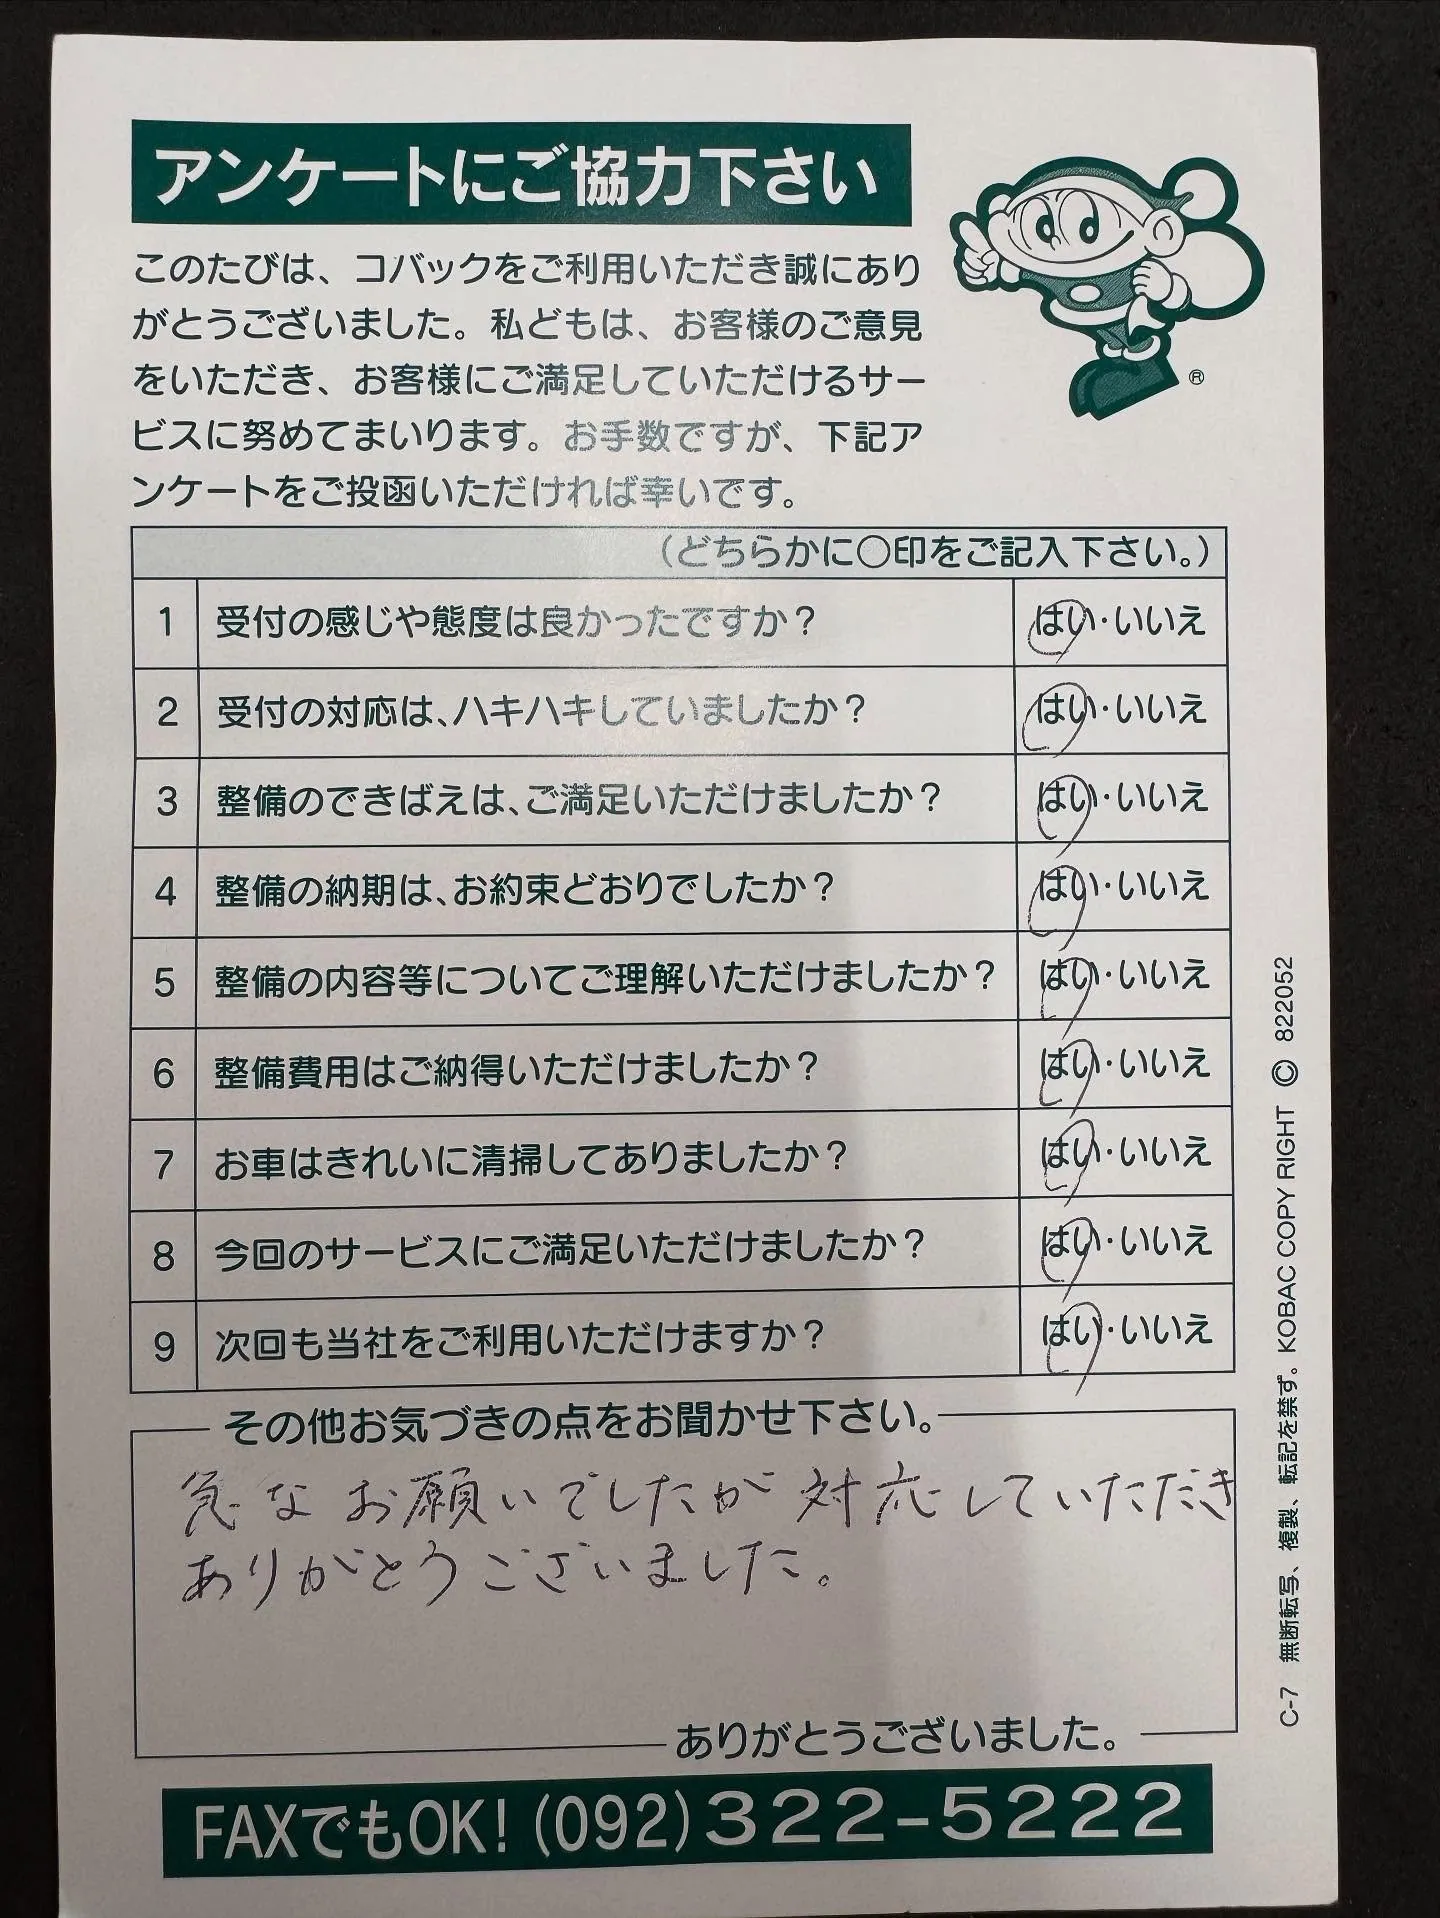 アンケートにご協力下さい
このたびは、コバックをご利用いただき誠にあり
がとうございました。私どもは、お客様のご意見
をいただき、お客様にご満足していただけるサー
ビスに努めてまいります。お手数ですが、下記ア
ンケートをご投函いただければ幸いです。
®
(どちらかに○印をご記入下さい。)
1 受付の感じや態度は良かったですか? はい・いいえ
2 受付の対応は、ハキハキしていましたか? はい・いいえ
3 整備のできばえは、ご満足いただけましたか? はい・いいえ
4 整備の納期は、お約束どおりでしたか? はい・いいえ
5 整備の内容等についてご理解いただけましたか? はい・いいえ
6 整備費用はご納得いただけましたか? はい・いいえ
7 お車はきれいに清掃してありましたか? はい・いいえ
8 今回のサービスにご満足いただけましたか? はい・いいえ
9 次回も当社をご利用いただけますか? はい・いいえ
その他お気づきの点をお聞かせ下さい。
急なお願いでしたが対応していただき
ありがとうございました。
ありがとうございました。
FAXでもOK!(092)322-5222
C-7 無断転写、複製、転記を禁ず。KOBAC COPY RIGHT © 822052